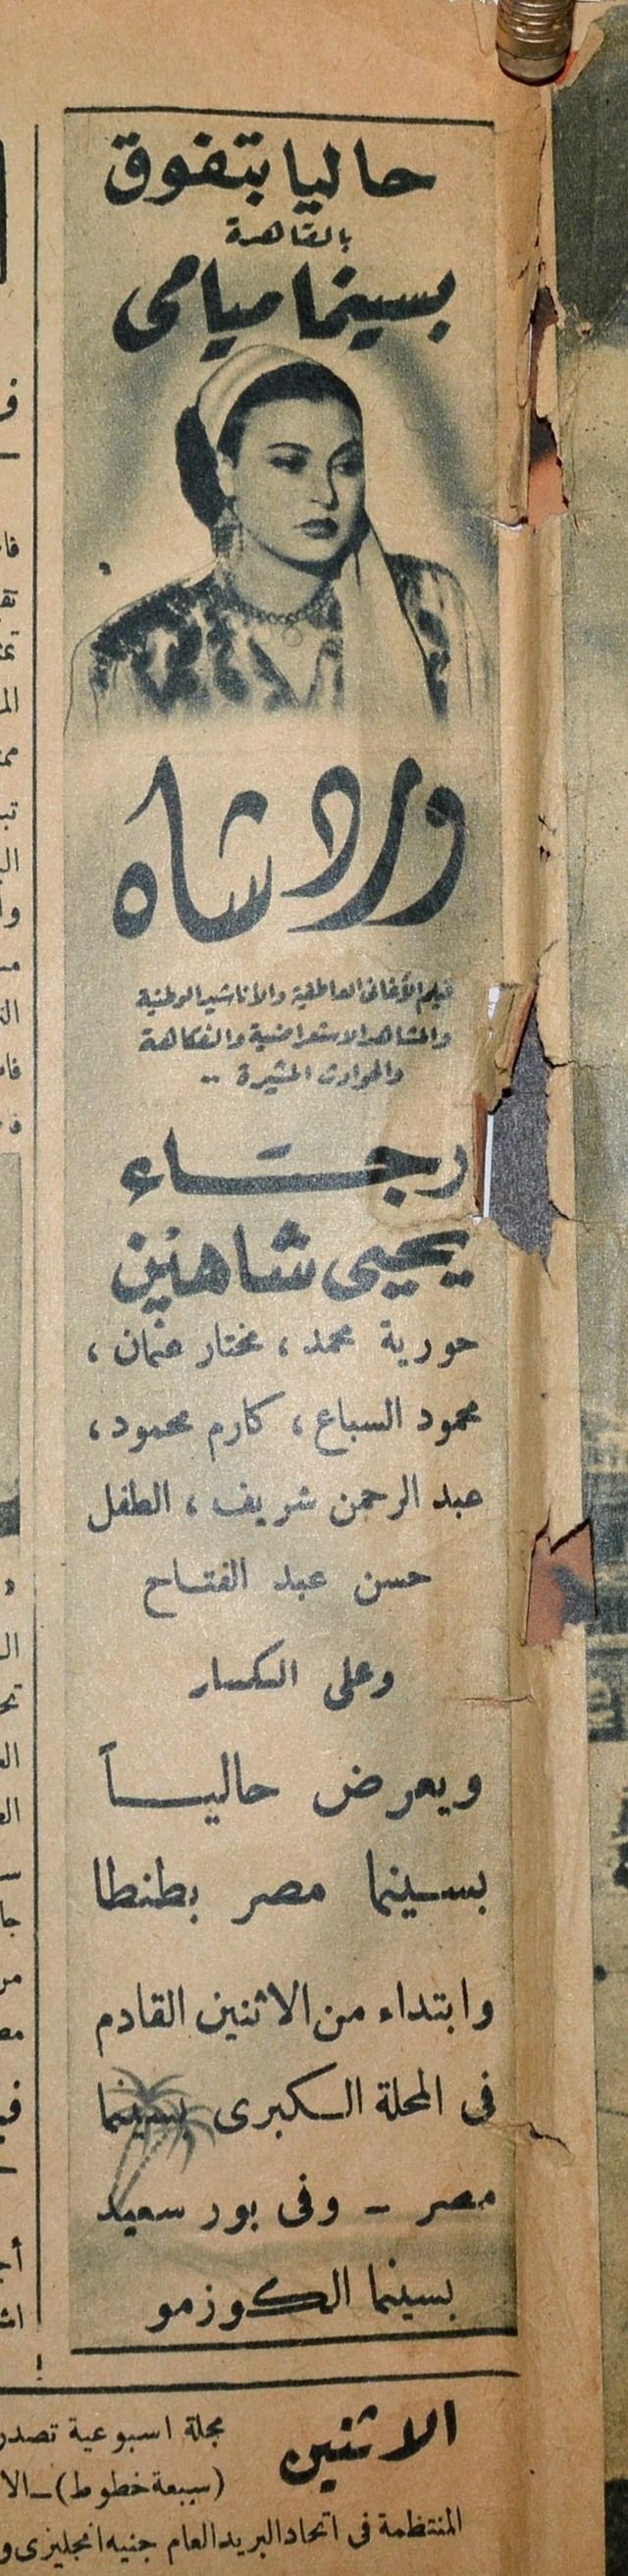 حاليا بتفوق
بالقاهرة
بسينما ميامى
ورد شاه
فيلم الأغانى العاطفية والأناشيد الوطنية
والمشاهد الاستعراضية والفكاهة
والحوادث المثيرة ..
رجاء
يحيى شاهين
حورية محمد ، مختار عثمان ،
محمود السباع ، كارم محمود ،
عبد الرحمن شريف ، الطفل
حسن عبد الفتاح
وعلى الكسار
ويعرض حالياً
بسينما مصر بطنطا
وابتداء من الاثنين القادم
فى المحلة الكبرى بسينما
مصر - وفى بور سعيد
بسينما الكوزمو
الاثنين
مجلة اسبوعية تصدر
(سبعة خطوط) - الا
المنتظمة فى اتحاد البريد العام جنيه انجليزى و